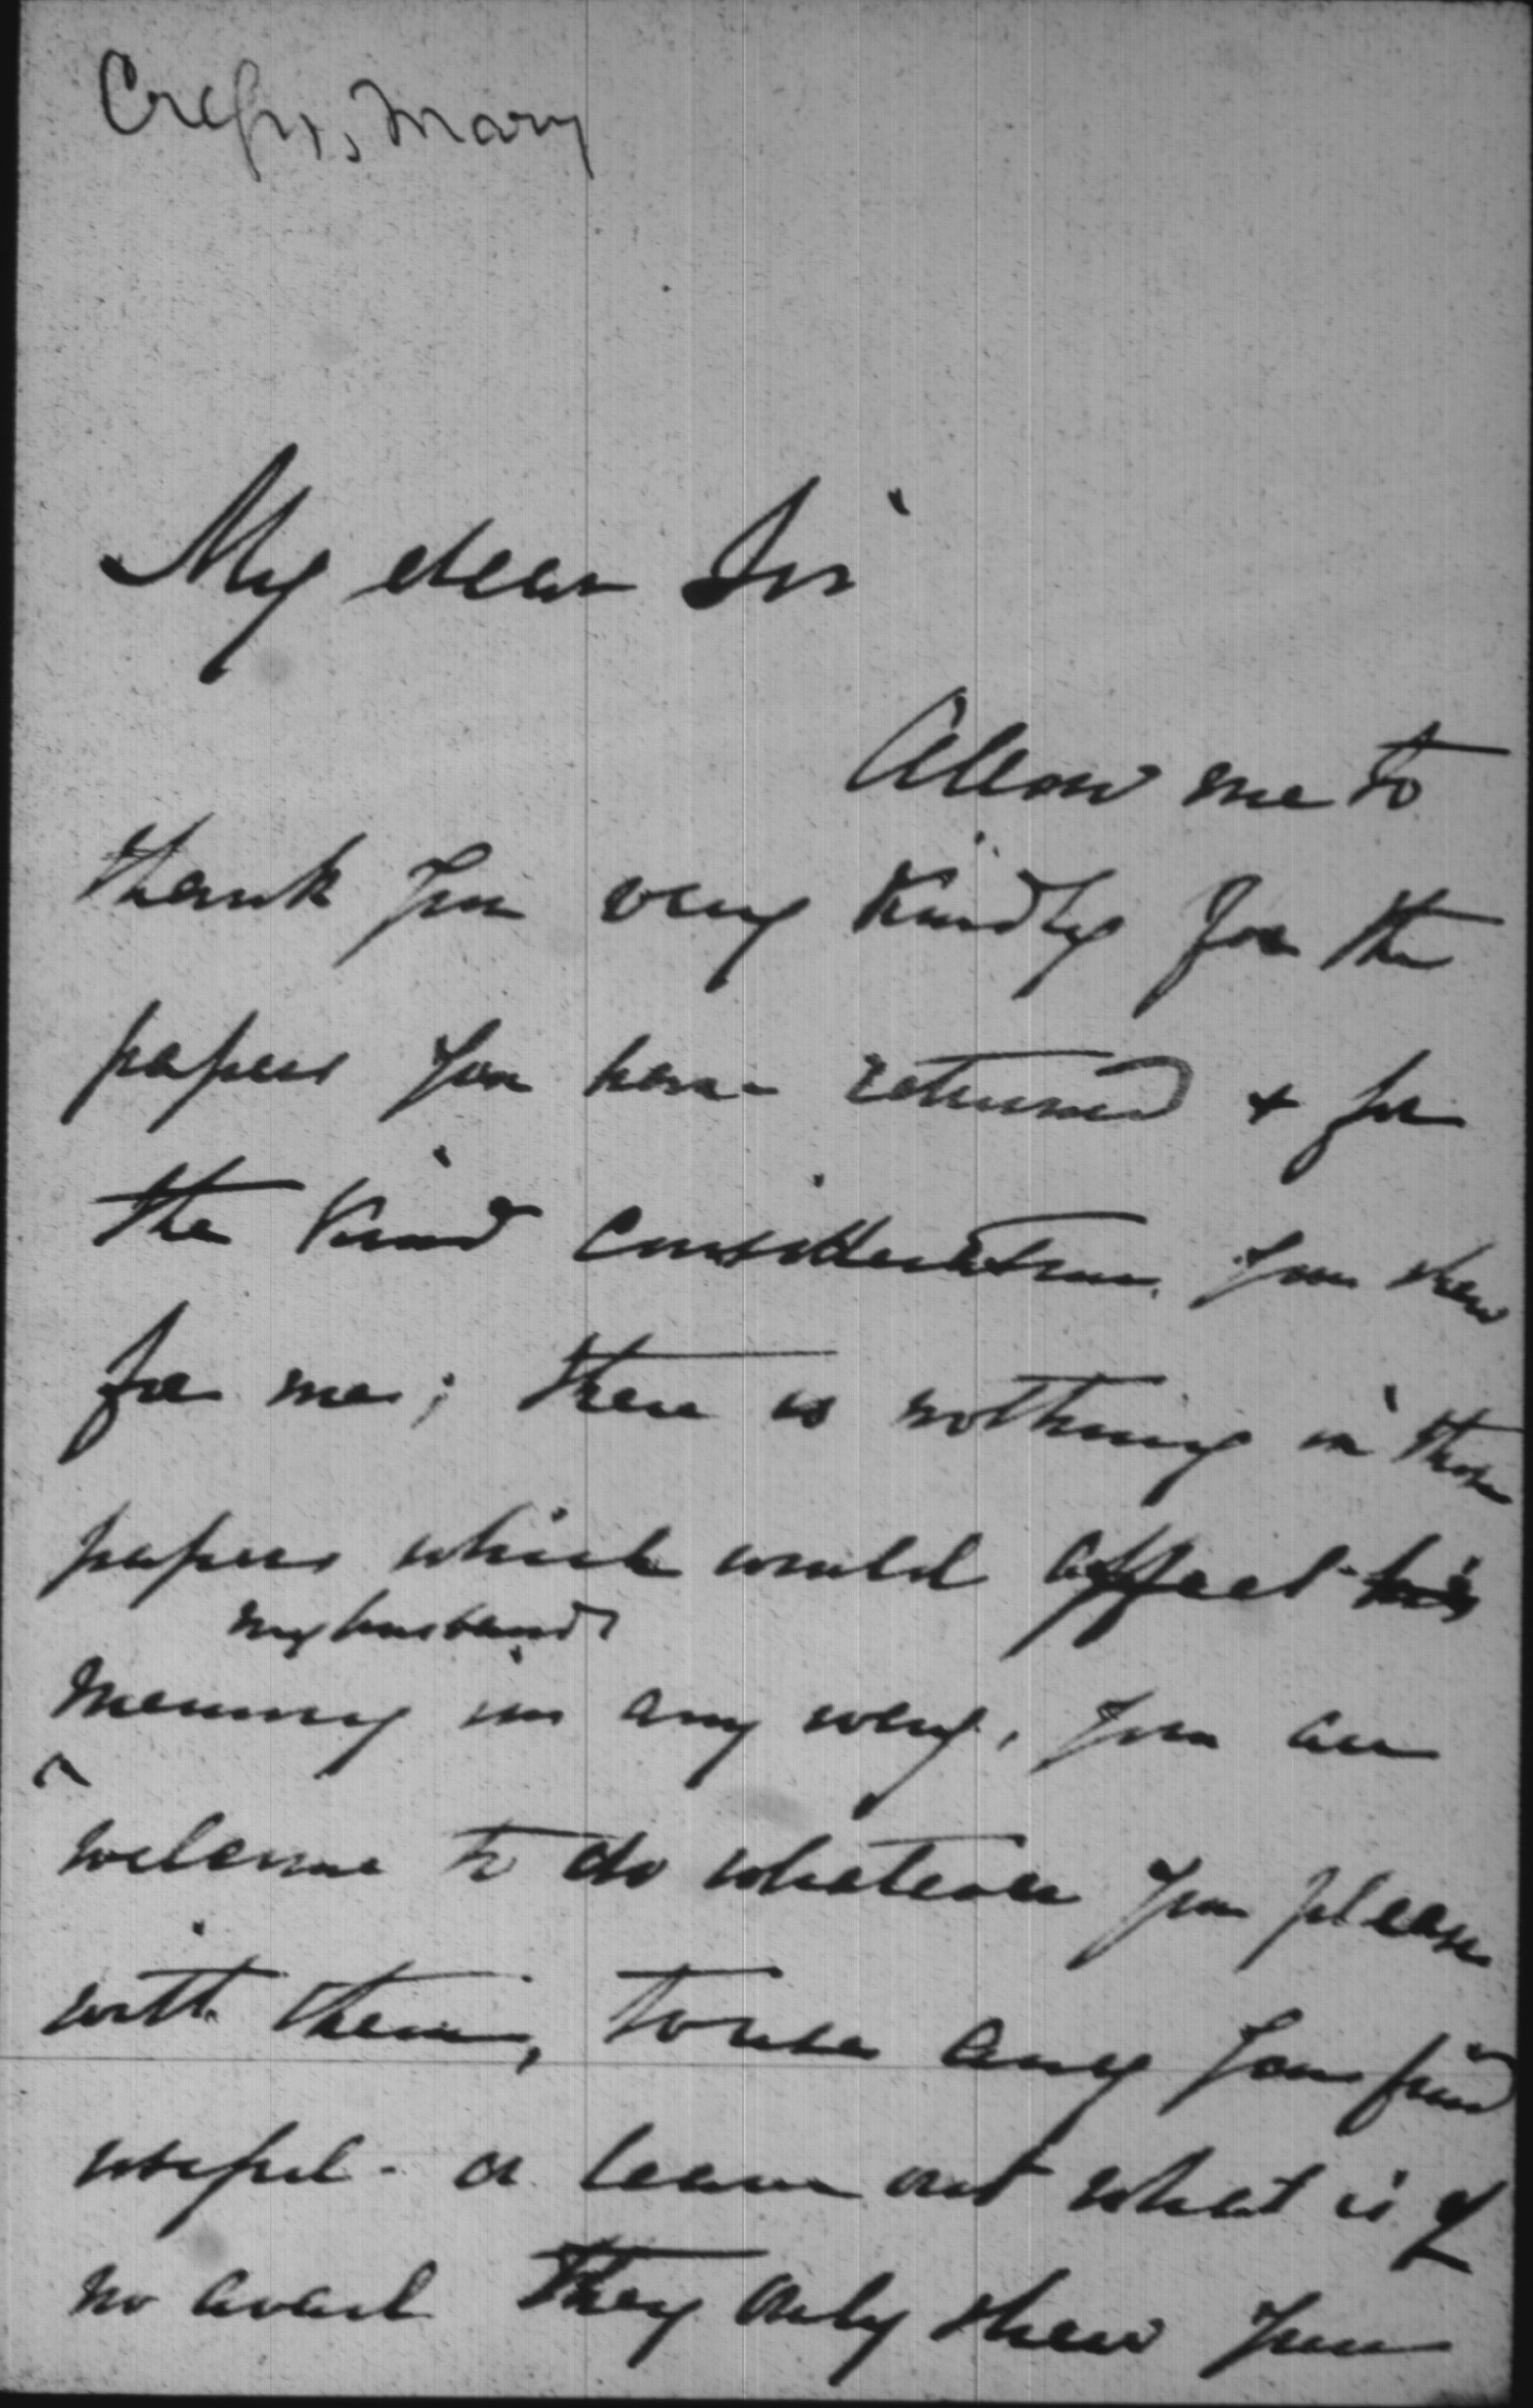 Mary
My dear Sir
Allow me to
thank you very kindly for the
papers you have returned & for
the kind consideration you shew
for me; there is nothing in those
papers which would affect his
my husbands
memory in any way, you are
^
welcome to do whatever you please
with them, to use any you find
useful - or leave out what is of
no avail They only shew you